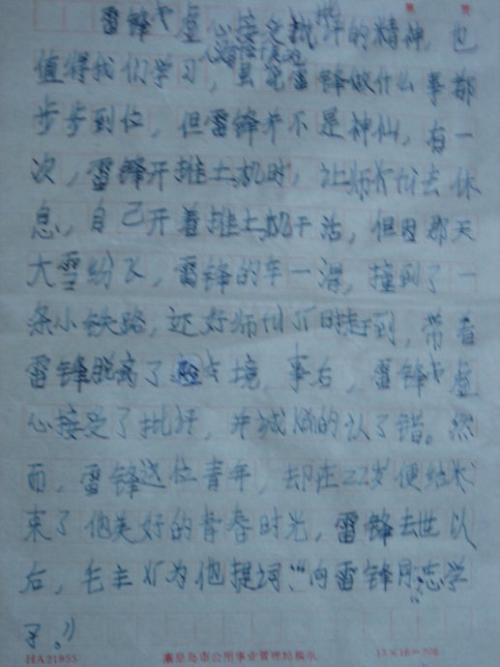 第 页
雷锋虚心接受批评的精神，也
值得我们学习，虽然雷锋做什么事都
步步到位，但雷锋并不是神仙，有一
次，雷锋开推土机时，让师傅去休
息，自己开着推土机干活，但因那天
大雪纷飞，雷锋的车一滑，撞到了一
条小铁路，还好师傅及时赶到，带着
雷锋脱离了困境，事后，雷锋虚
心接受了批评，并诚恳的认了错。然
而，雷锋这位青年，却在22岁便结
束了他美好的青春时光，雷锋去世以
后，毛主席为他提词：“向雷锋同志学
习。”
HA21955 秦皇岛市公用事业管理局稿纸 15×16=